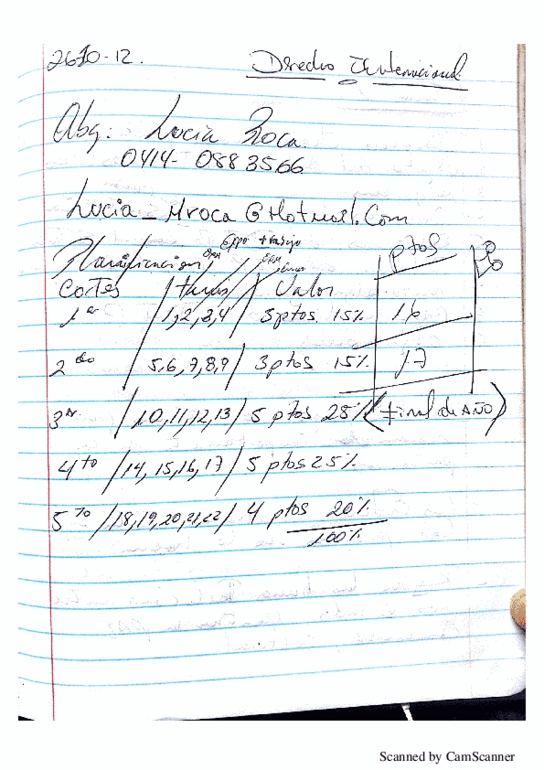 26-10-12. Derecho Internacional
Abg: Lucia Roca.
0414-0883566
Lucia_Mroca@Hotmail.Com
Planificacion Expo + trabajo ptos
Cortes / temas / Valor
1er / 1,2,3,4 / 3 ptos. 15% 16
2do 5,6,7,8,9 / 3 ptos 15% 17
3er / 10,11,12,13 / 5 ptos 25% (final de AÑO)
4to / 14, 15, 16, 17 / 5 ptos 25%
5to / 18,19,20,21,22 / 4 ptos 20%
100%
Scanned by CamScanner